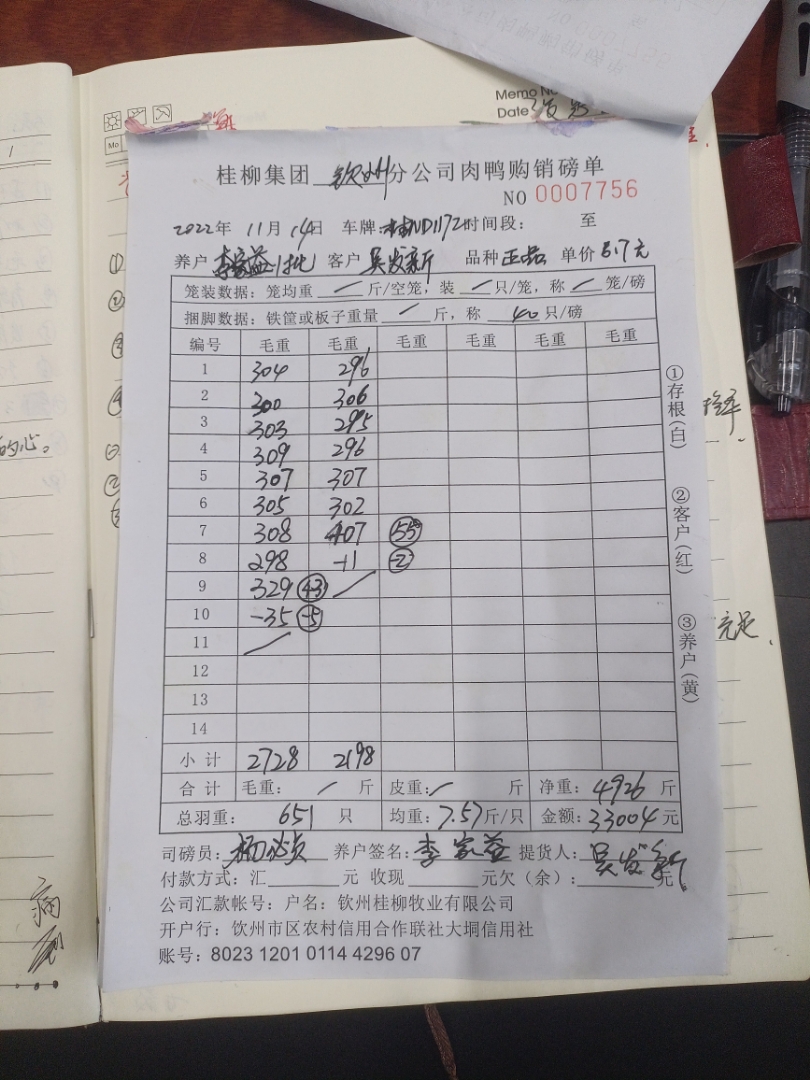 Memo No
Date
Mo
桂柳集团 钦州 分公司肉鸭购销磅单
NO 0007756
2022年 11月 14日 车牌: 时间段: 至
养户 李家益 1批 客户 吴发新 品种 正品 单价 6.7元
笼装数据: 笼均重 / 斤/空笼, 装 / 只/笼, 称 / 笼/磅
捆脚数据: 铁筐或板子重量 / 斤, 称 40 只/磅
编号 毛重 毛重 毛重 毛重 毛重 毛重
1 304 296
2 300 306
3 303 295
4 309 296
5 307 307
6 305 302
7 308 407 55
8 298 -11 -2
9 329 43 /
10 -35 -5
11 /
12
13
14
小计 2728 2198
合计 毛重: / 斤 皮重: / 斤 净重: 4926 斤
总羽重: 651 只 均重: 7.57斤/只 金额: 33004元
司磅员: 养户签名: 李家益 提货人: 吴发新
付款方式: 汇 元 收现 元欠(余): 元
公司汇款帐号: 户名: 钦州桂柳牧业有限公司
开户行: 钦州市区农村信用合作联社大垌信用社
账号: 8023 1201 0114 4296 07
①存根(白)
②客户(红)
③养户(黄)
的心。
充足.